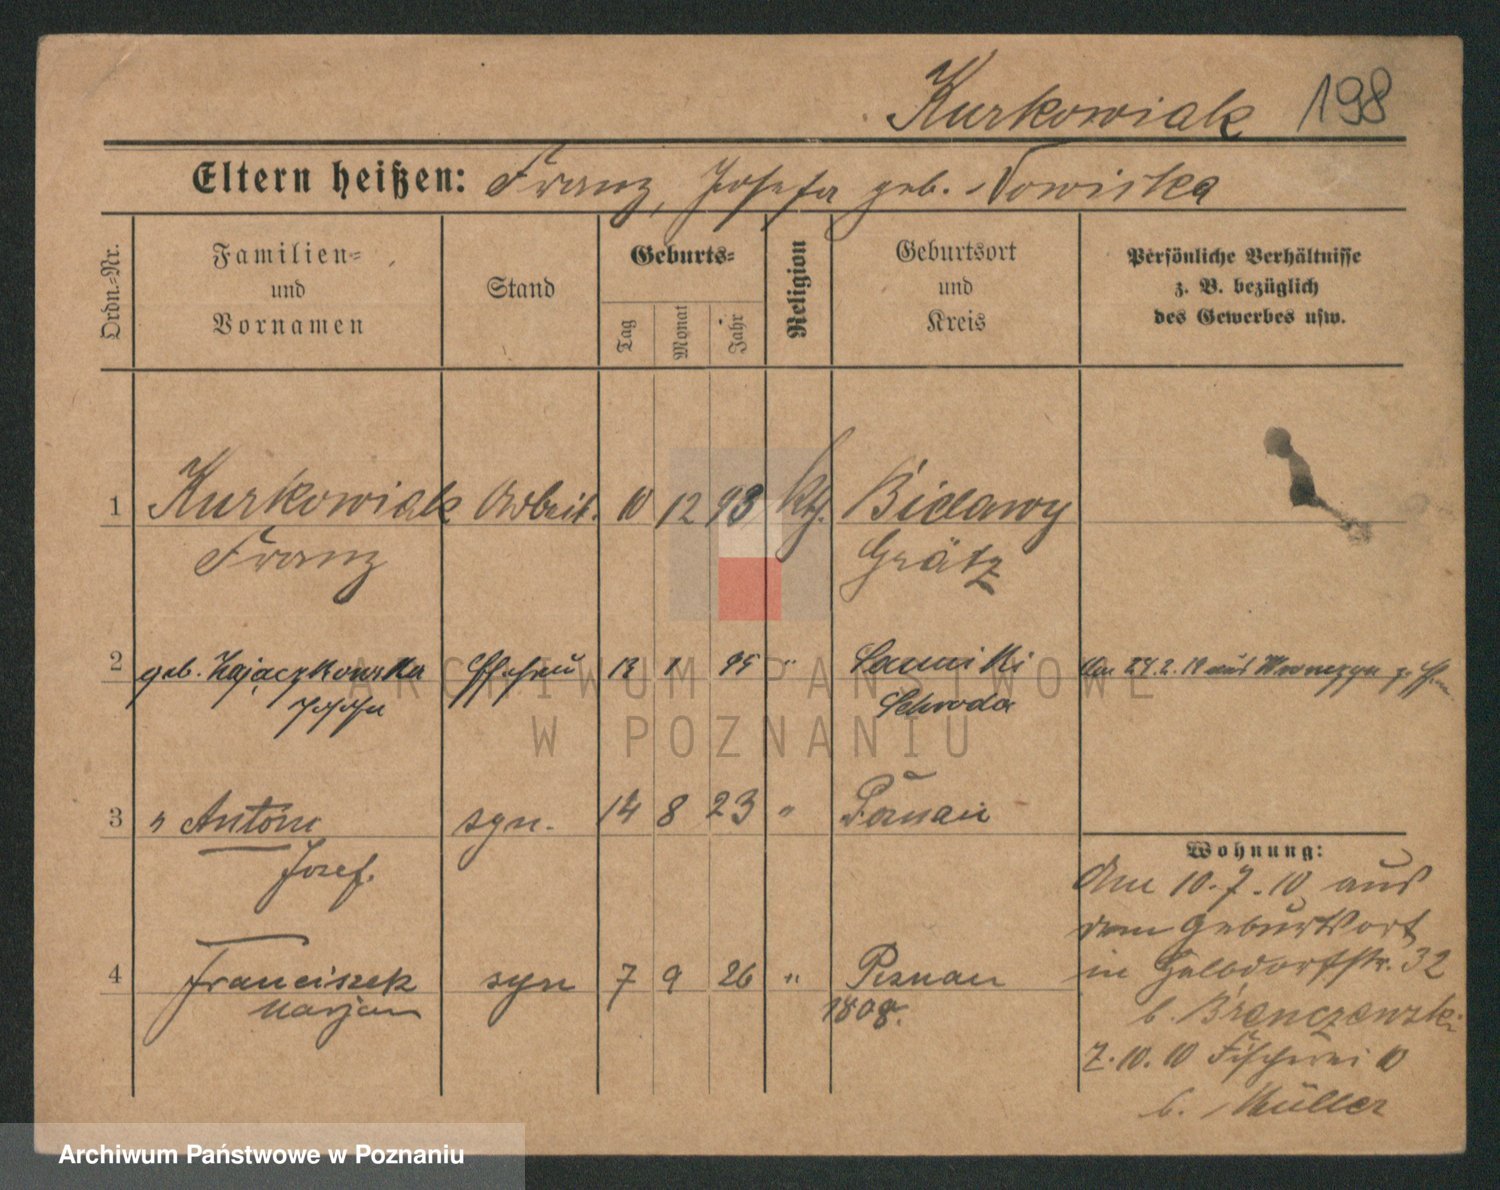 Kurkowiak 198
Eltern heißen: Franz, Josefa geb. Nowicka
Ordn.-Nr.
Familien- und Vornamen
Stand
Geburts-
Tag
Monat
Jahr
Religion
Geburtsort und Kreis
Persönliche Verhältnisse
z. B. bezüglich
des Gewerbes usw.
1 Kurkowiak Arbeit. 10 12 93 kth. Bielawy
Franz Grätz
2 geb. Zajączkowska Ehefrau 13 1 95 "
Schroda
3 " Antoni syn. 14 8 23 " Poznań
Josef.
Wohnung:
Am 10.7.10 aus
dem Geburtsort
in 32
4 Franciszek syn 7 9 26 " Poznań
Marjan 1808.
b.
7.10.10 Fischerei 10
b. Müller
ARCHIWUM PAŃSTWOWE
W POZNANIU
Archiwum Państwowe w Poznaniu